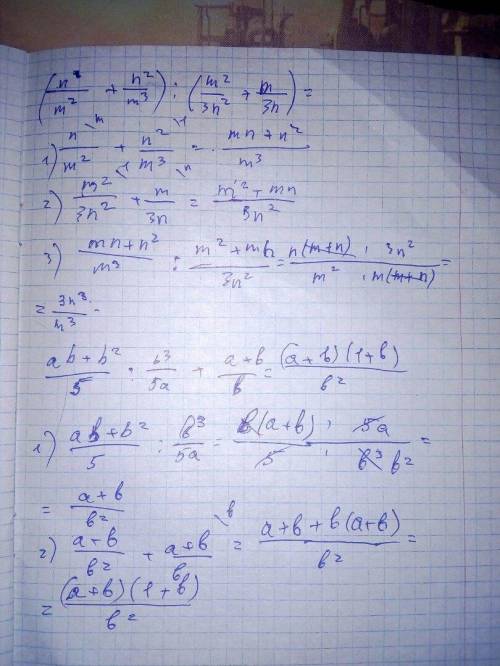 (n/m² + n²/m³) : (m²/3n² + m/3n) =
1) n/m² \m + n²/m³ \1 = mn + n²/m³
2) m²/3n² \1 + m/3n \n = m² + mn/3n²
3) mn + n²/m³ : m² + mn/3n² = n(m+n) · 3n²/m² · m(m+n) =
= 3n³/m³ .
ab + b²/5 : b³/5a + a+b/b = (a+b)(1+b)/b²
1) ab + b²/5 : b³/5a = b(a+b) · 5a/5 · b³ b² =
= a+b/b²
2) a+b/b² + a+b/b \b = a+b + b(a+b)/b² =
= (a+b)(1+b)/b²